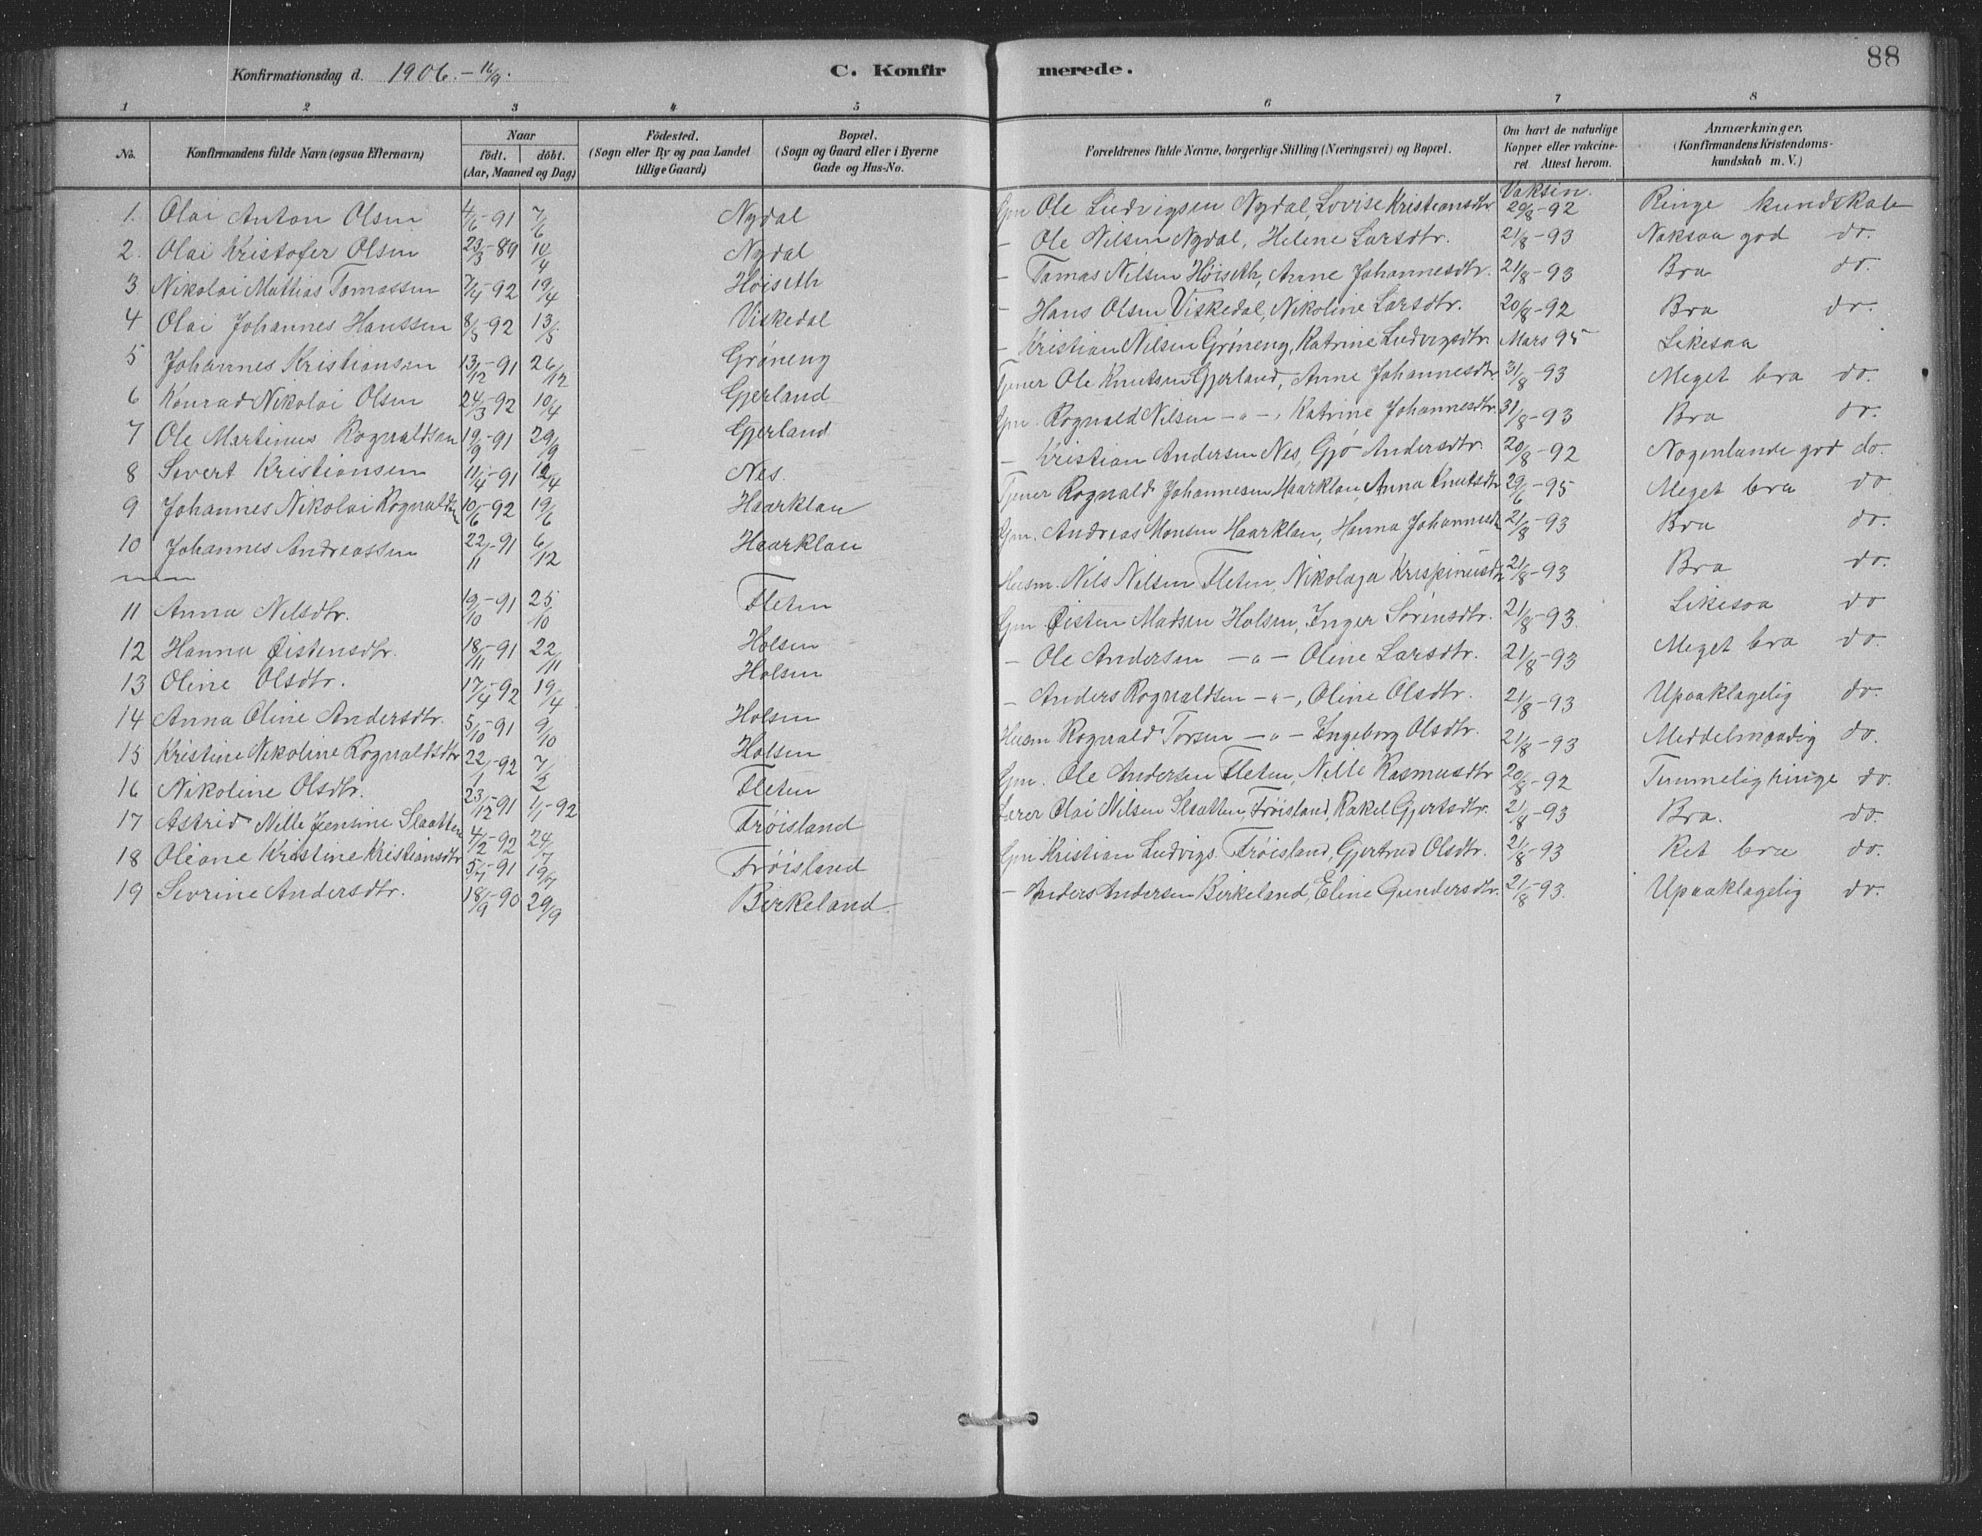 88
Konfirmationsdag d. 1906. - 16/9. C. Konfirmerede.
1 2 3 4 5 6 7 8
No. Konfirmandens fulde Navn (ogsaa Efternavn) Naar födt. döbt. (Aar, Maaned og Dag) Födested. (Sogn eller By og paa Landet tillige Gaard) Bopæl. (Sogn og Gaard eller i Byerne Gade og Hus-No. Forældrenes fulde Navne, borgerlige Stilling (Næringsvei) og Bopæl. Om havt de naturlige Kopper eller vakcineret Attest herom. Anmærkninger. (Konfirmandens Kristendomskundskab m. V.)
Vaksin.
1. Olai Anton Olsen 4/6-91 7/6 Nydal Gm Ole Ludvigsen Nydal, Lovise Kristiansdtr 29/8-92 Ringe kundskab
2. Olai Kristofer Olsen 23/3-89 10/4 Nydal - Ole Nilsen Nydal, Helene Larsdtr. 21/8-93 Noksaa god do.
3 Nikolai Mattias Tomassen 7/4-92 19/4 Høiseth - Tomas Nilsen Høiseth, Anne Johannesdtr. 21/8-93 Bra do.
4 Olai Johannes Hanssen 8/5-92 13/5 Viskedal - Hans Olsen Viskedal, Nikoline Larsdtr. 20/8-92 Bra do.
5 Johannes Kristiansen 13/12-91 26/12 Grøneng - Kristian Nilsen Grøneng, Katrine Ludvigsdtr. Mars 95 Likesaa
6 Konrad Nikolai Olsen 24/3-92 10/4 Gjerland Tjener Ole Knutsen Gjerland, Anne Johannesdtr 31/8-93 Meget bra do.
7 Ole Martinus Rognaldsen 19/9-91 29/9 Gjerland Gm. Rognald Nilsen -"-, Katrine Johannesdtr. 31/8-93 Bra do.
8 Sivert Kristiansen 11/4-91 12/4 Nes - Kristian Andersen Nes, Gjø Andersdtr. 20/8-92 Nogenlunde god do.
9 Johannes Nikolai Rognaldsen 10/6-92 19/6 Haarklau Tjener Rognald Johannesen Haarklau Anna Knutsdtr 29/6-95 Meget bra do
10 Johannes Andreassen 22/11-91 6/12 Haarklau Gm. Andreas Monsen Haarklau, Hanna Johannesdtr 21/8-93 Bra do.
11 Anna Nilsdtr. 19/10-91 25/10 Fleten Husm. Nils Nilsen Fleten, Nikolaga Krispinusdtr 21/8-93 Bra do.
12 Hanna Øistensdtr. 18/11-91 22/11 Holsen Gm Øisten Madsen Holsen, Inger Sørensdtr. 21/8-93. Likesaa do
13 Oline Olsdtr. 17/4-92 19/4 Holsen - Ole Andersen -"- Oline Larsdtr. 21/8-93 Meget bra do.
14 Anna Oline Andersdtr. 5/10-91 9/10 Holsen - Anders Rognaldsen -"-, Oline Olsdtr. 21/8-93 Upaaklagelig do.
15 Kristine Nikoline Rognaldsdtr 22/1-92 7/2 Holsen Husm Rognald Torsen -"- Ingeborg Olsdtr. 21/8-93 Middelmaadig do.
16 Nikoline Olsdtr. 23/12-91 1/1-92 Fleten Gm. Ole Andersen Fleten, Nille Rasmusdtr 20/8-92 Temmelig ringe do.
17 Astrid Nille Jensine Slaatten 4/2-92 24/7 Frøisland Lærer Olai Nilsen Slaatten, Frøisland, Rakel Gjertsdtr. 21/8-93 Bra. do.
18 Oliane Kristine Kristiansdtr 5/4-91 19/4 Frøisland Gm Kristian Ludvigs. Frøisland, Gjertrud Olsdtr. 21/8-93 Ret bra do.
19 Sivrine Andersdtr. 18/9-90 29/9 Birkeland. - Anders Andersen Birkeland, Eline Gundersdtr. 21/8-93. Upaaklagelig do.